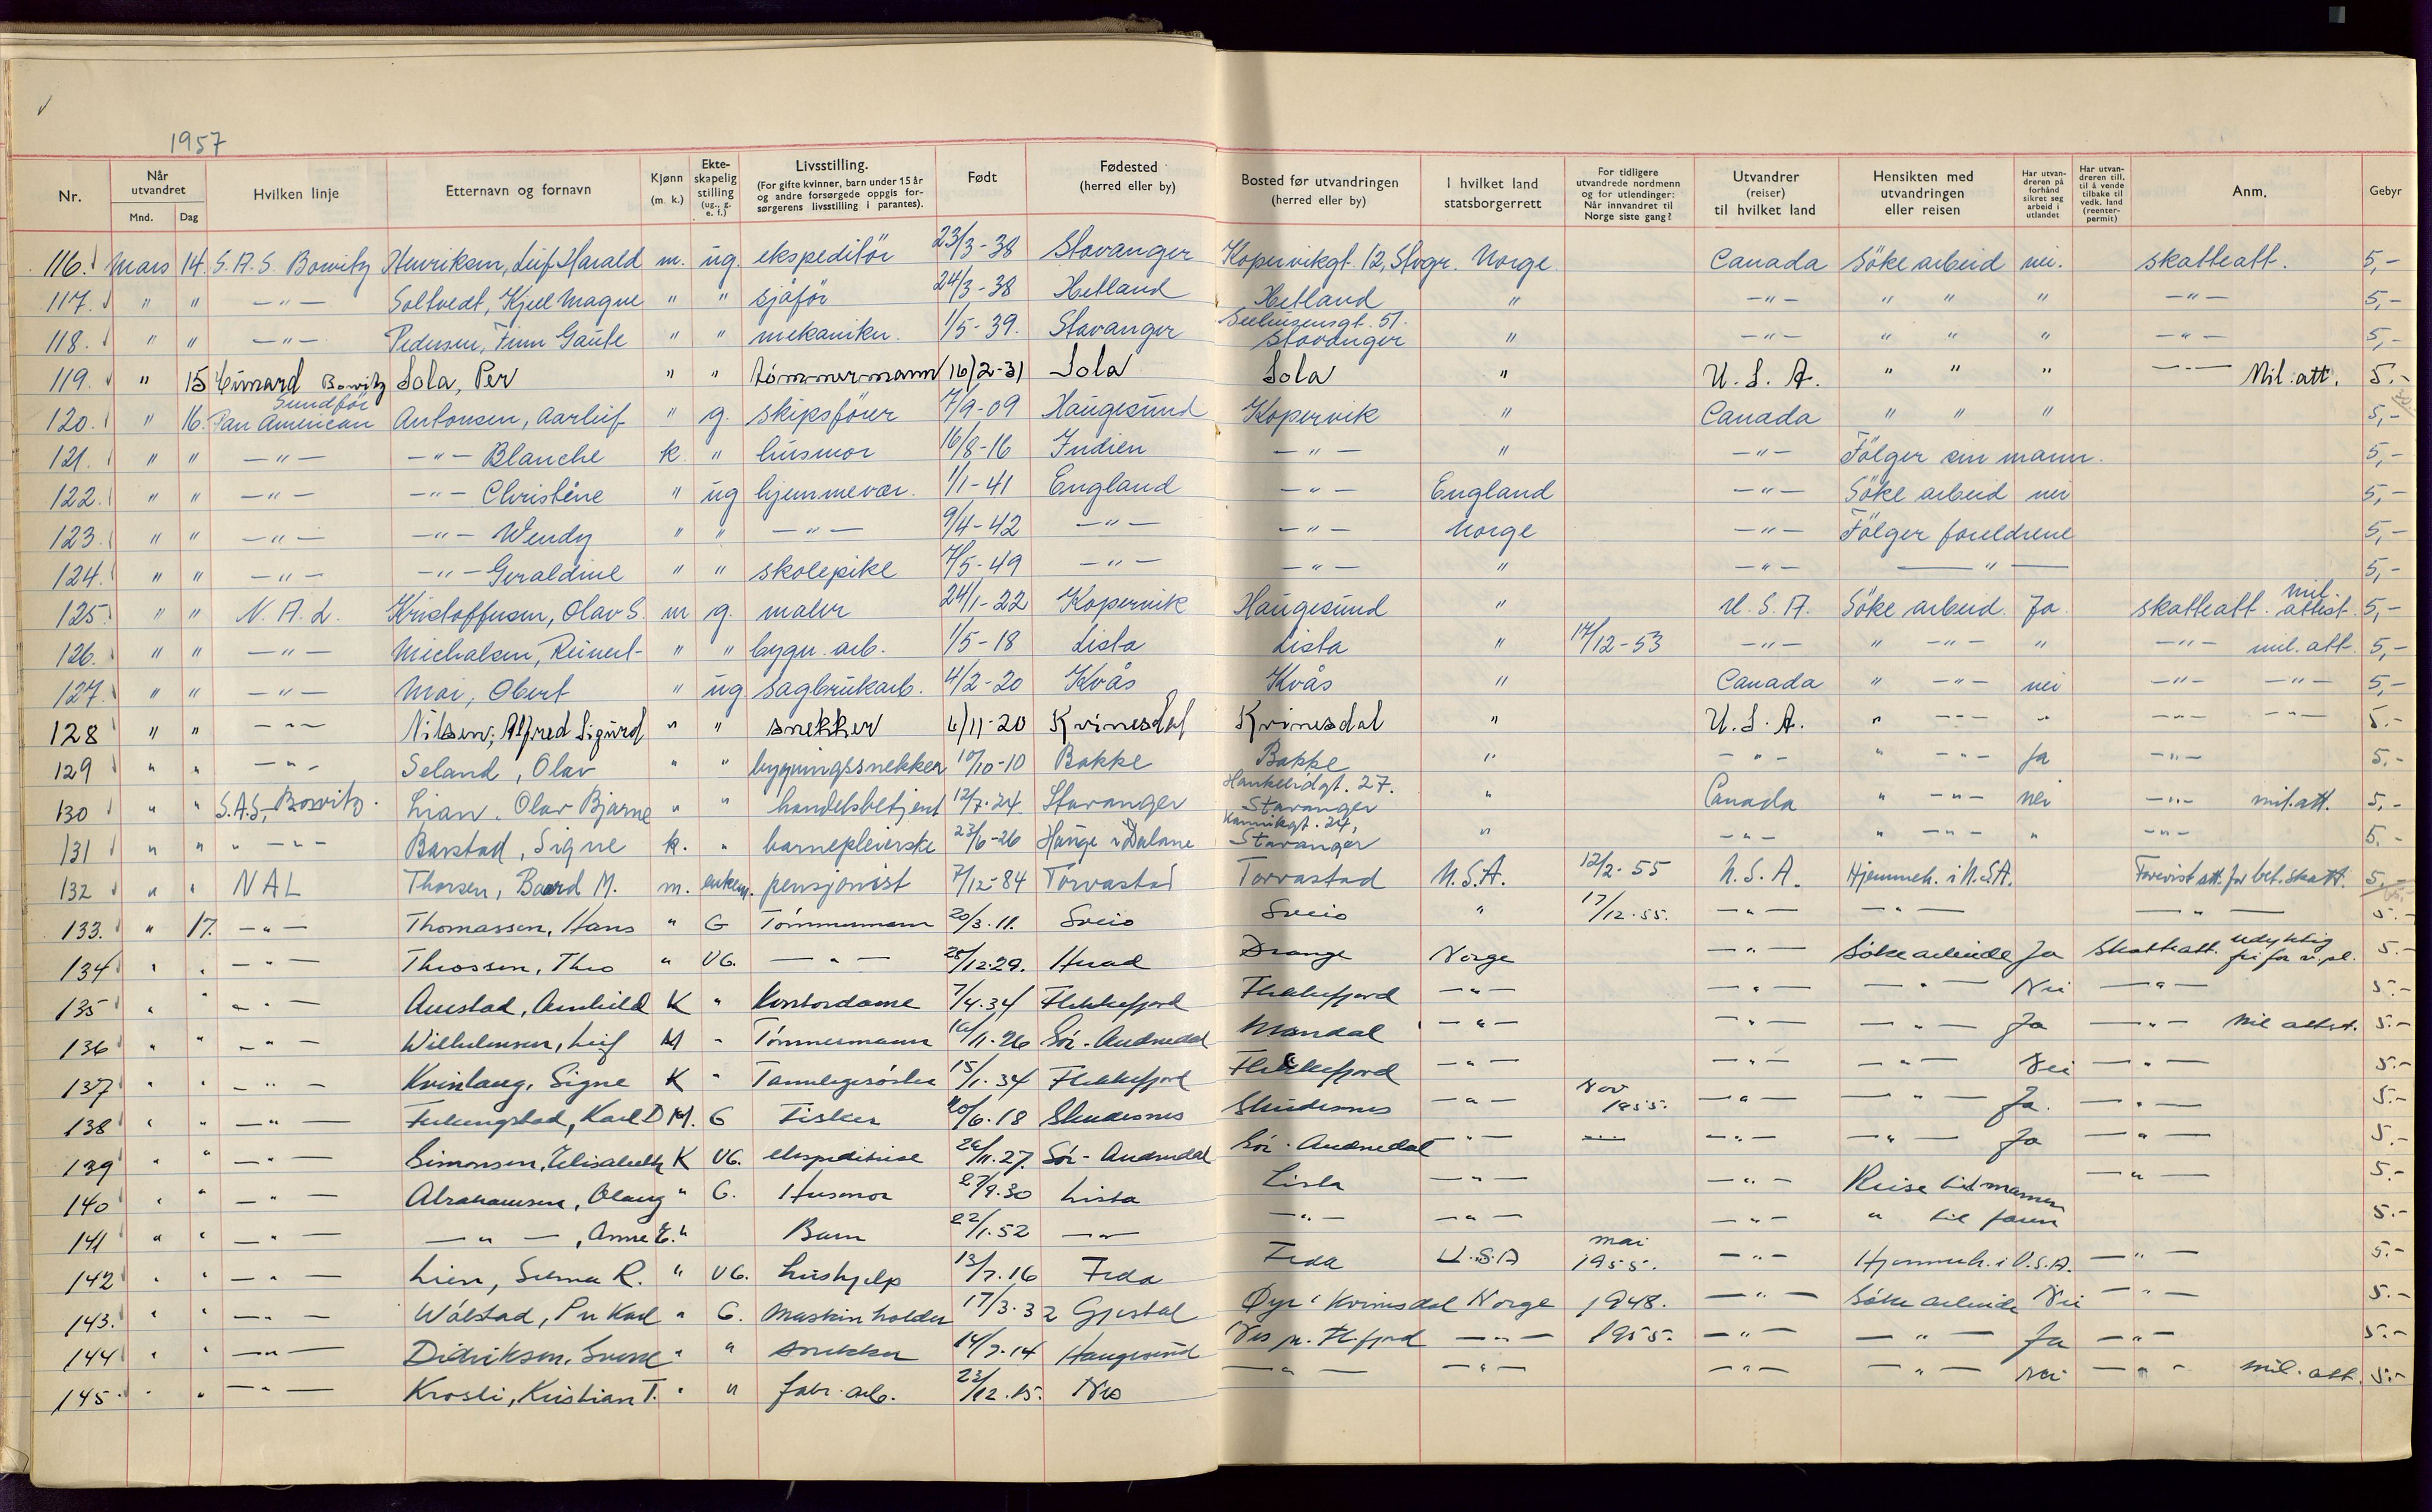 1957
Nr. Når utvandret Mnd. Dag Hvilken linje Etternavn og fornavn Kjønn (m. k.) Ekteskapelig stilling (ug., g. e. f.) Livsstilling. (For gifte kvinner, barn under 15 år og andre forsørgede oppgis forsørgerens livsstilling i parantes). Født Fødested (herred eller by) Bosted før utvandringen (herred eller by) I hvilket land statsborgerrett For tidligere utvandrede nordmenn og for utlendinger: Når innvandret til Norge siste gang? Utvandrer (reiser) til hvilket land Hensikten med utvandringen eller reisen Har utvandreren på forhånd sikret seg arbeid i utlandet Har utvandreren till. til å vende tilbake til vedk. land (reenterpermit) Anm. Gebyr
116. Mars 14. S.A.S. Bowitz Henriksen, Leif Harald m. ug. ekspeditör 23/3-38 Stavanger Kopervikgt. 12, Stvgr. Norge Canada Söke arbeid nei. skatteatt. 5,-
117. " " -"- Soltvedt, Kjell Magne " " sjåför 24/3-38 Hetland Hetland " -"- " " " -"- 5,-
118. " " -"- Pedersen, Finn Gaute " " mekaniker. 1/5-39. Stavanger Seehusensgt. 51. Stavanger " -"- " " " -"- 5,-
119. " 15 Cunard Bowitz Sola, Per " " tömmermann 16/2-31 Sola Sola " U.S.A. " " " -"- Mil. att. 5.-
120. " 16. Pan American Sundför Antonsen, Aarleif " g. skipsförer 7/9-09 Haugesund Kopervik " Canada " " " 5,-
121. " " -"- -"- Blanche k " husmor 16/8-16 Indien -"- " -"- Fölger sin mann. 5,-
122. " " -"- -"- Christine " ug hjemmevær. 1/1-41 England -"- England -"- Söke arbeid nei 5,-
123. " " -"- -"- Wendy " " -"- 9/4-42 -"- -"- Norge -"- Fölger foreldrene 5,-
124. " " -"- -"- Geraldine " " skolepike 7/5-49 -"- -"- " -"- -"- 5,-
125. " " N.A.L. Kristoffersen, Olav S. m g. maler 24/1-22 Kopervik Haugesund " U.S.A. Söke arbeid. Ja. skatteatt. mil. attest. 5,-
126. " " -"- Michalsen, Reinert " " bygn. arb. 1/5-18 Lista Lista " 14/12-53 -"- " -"- " -"- mil. att. 5,-
127. " " -"- Moi, Obert " ug sagbrukarb. 4/2-20 Kvås Kvås " Canada " -"- nei -"- -"- 5,-
128 " " -"- Nilsen, Alfred Sigurd " " snekker 6/11-20 Kvinesdal Kvinesdal " U.S.A. " -"- " -"- -"- 5.-
129 " " -"- Seland, Olav " " bygningssnekker 10/10-10 Bakke Bakke " -"- " -"- Ja -"- 5.-
130 " " S.A.S., Bowitz. Lian, Olav Bjarne " " handelsbetjent 12/7-24 Stavanger Haukelidgt. 27. Stavanger " Canada " -"- nei -"- mil. att. 5,-
131 " " " -"- Barstad, Signe k. " barnepleierske 23/6-26 Hauge i Dalane Kannikgt. 24, Stavanger " -"- " -"- " -"- 5.-
132 " " NAL Thorsen, Baard M. m. enkem. pensjonist 7/12-84 Torvastad Torvastad U.S.A. 12/2-55 U.S.A. Hjemmeh. i U.S.A. Forevist att. for bet. skatt. 5,-
133. " 17. -"- Thomassen, Hans " G Tömmermann 20/3.11. Sveio Sveio " 17/12.55. -"- -"- -"- 5.-
134 " " -"- Theo " UG. -"- 28/12.29. Norge -"- Söke arbeide Ja Skatteatt. udyktig 5.-
135 " " -"- K " Kontordame 7/4.34 Flekkefjord Flekkefjord -"- -"- -"- Nei -"- 5.-
136 " " -"- Wilhelmsen, Leif M " Tömmermann 10/11.26 Sör-Audnedal Mandal -"- -"- -"- Ja -"- Mil attst. 5.-
137 " " -"- Kvinlaug, Signe K " Tannlegesöster 15/1.34 Flekkefjord Flekkefjord -"- -"- -"- Nei -"- 5.-
138 " " -"- Karl D M. G Fisker 20/6.18 Skudesnes Skudesnes -"- Nov 1955. -"- -"- Ja. -"- 5.-
139 " " -"- Simonsen, Elisabeth K UG. ekspeditrise 24/11.27. Sör-Audnedal Sör-Audnedal -"- -"- -"- Ja -"- 5.-
140 " " -"- Abrahamsen, Olaug " G. Husmor 27/9.30 Lista Lista -"- -"- Reise til mannen -"- 5.-
141 " " -"- -"-, Anne E. " Barn 22/1.52 -"- -"- -"- -"- " til faren 5.-
142 " " -"- Lien, Selma R. " UG. hushjelp 13/7.16 Feda Feda U.S.A mai 1955. -"- Hjemmeh. i U.S.A. -"- 5.-
143. " " -"- Wålstad, Per Karl " G. Maskinholder 17/3.32 Gjestal Öye i Kvinesdal Norge 1948. -"- Söke arbeide Nei -"- 5.-
144 " " -"- Didriksen, Sverre " " snekker 14/7.14 Haugesund Nes pr. Fl.fjord -"- 1955. -"- -"- Ja -"- 5.-
145. " " -"- Krosli, Kristian T. " " fabr. arb. 23/12.15. Nes -"- -"- -"- -"- nei -"- mil. att. 5.-